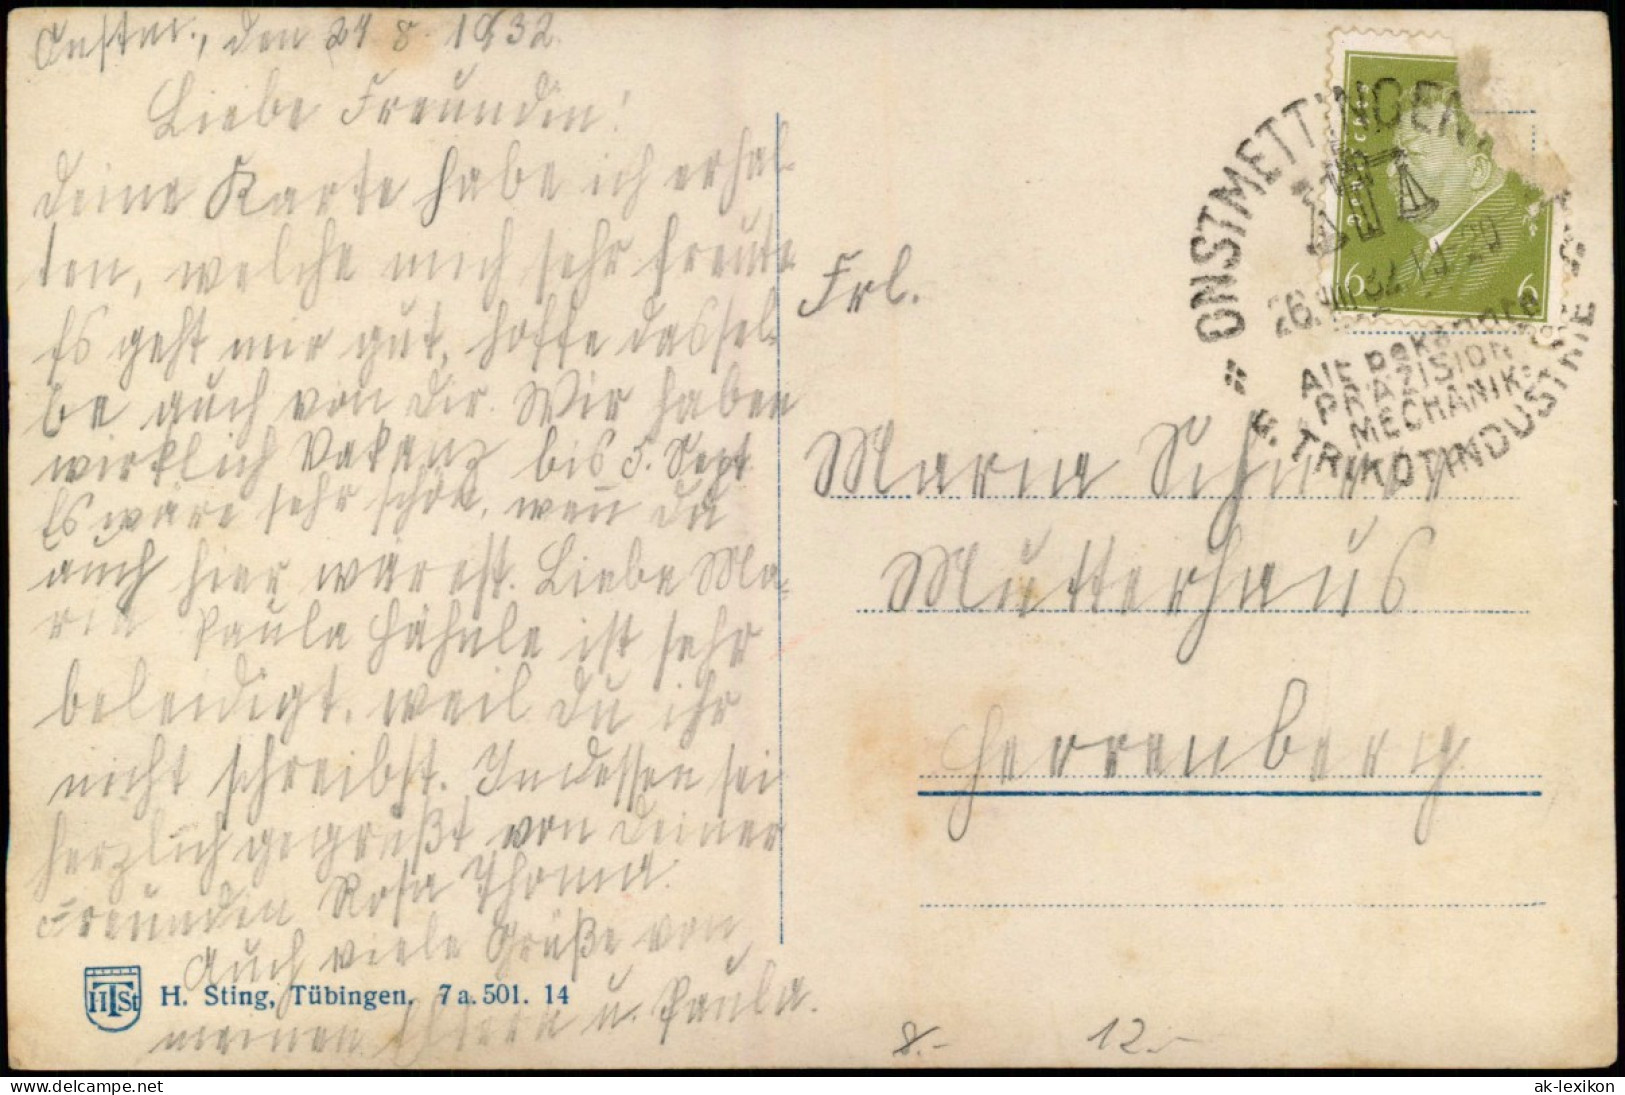 Onstm., den 24 8. 1932.
Liebe Freundin!
Deine Karte habe ich erhal-
ten, welche mich sehr freute
Es geht mir gut, hoffe dassel-
be auch von Dir. Wir haben
wirklich Vakanz bis 5. Sept.
Es wäre sehr schön, wen̄ Du
auch hier wärest. Liebe Ma-
ria Paula Hähnle ist sehr
beleidigt, weil Du ihr
nicht schreibst. Indessen sei
herzlich gegrüßt von Deiner
Freundin Rosa Thoma.
Auch viele Grüße von
meinen Eltern u. Paula.
HTSt H. Sting, Tübingen. 7 a. 501. 14
Frl.
Maria
Mutterhaus
Herrenberg
ONSTMETTINGEN
26. VIII 32 19-20
Die bekannte
PRÄZISION
MECHANIK-
u. TRIKOTINDUSTRIE
6 6
8.- 12.-
ak-lexikon